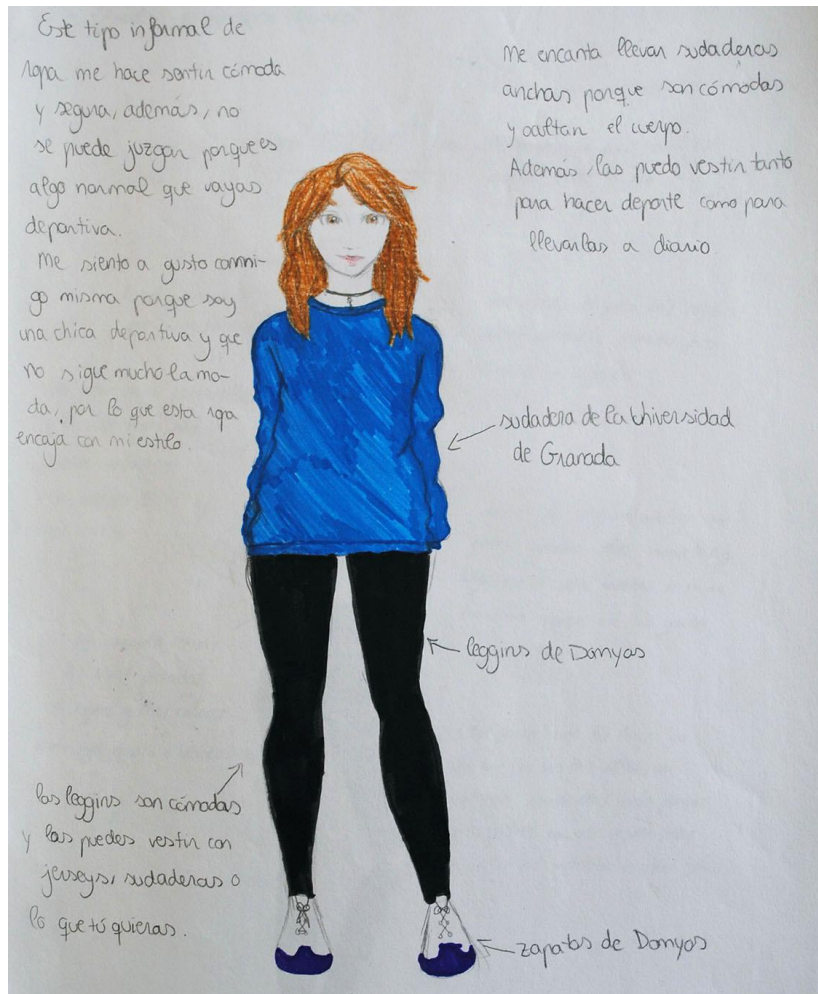 Este tipo informal de
ropa me hace sentir cómoda
y segura, además, no
se puede juzgar porque es
algo normal que vayas
deportiva.
Me siento a gusto conmi-
go misma porque soy
una chica deportiva y que
no sigue mucho la mo-
da, por lo que esta ropa
encaja con mi estilo.
Me encanta llevar sudaderas
anchas porque son cómodas
y ocultan el cuerpo.
Además, las puedo vestir tanto
para hacer deporte como para
llevarlas a diario
sudadera de la Universidad
de Granada
leggins de Domyos
los leggins son cómodas
y las puedes vestir con
jerseys, sudaderas o
lo que tú quieras.
zapatos de Domyos